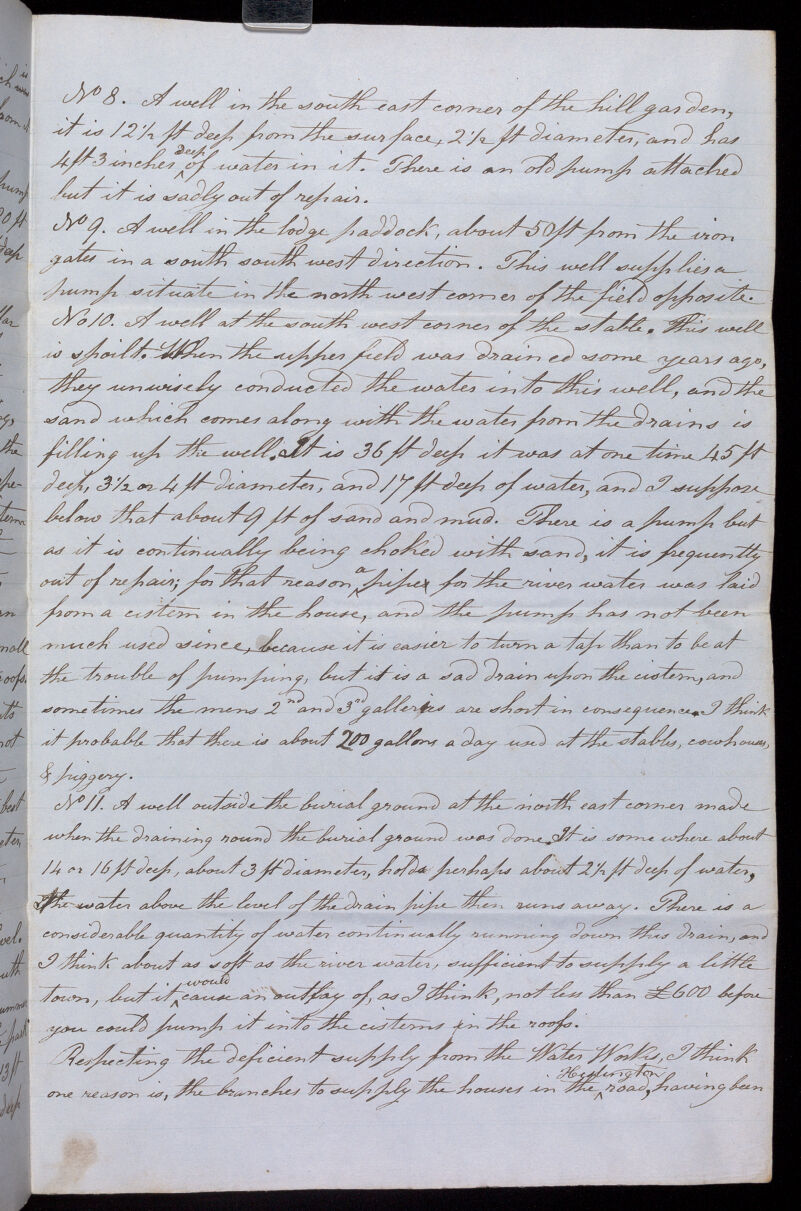 No 8. A well in the south east corner of the hill garden,
it is 12 1/2 ft deep from the surface, 2 1/2 ft diameter, and has
4 ft 3 inches deep of water in it. There is an old pump attached
but it is sadly out of repair.
No 9. A well in the lodge paddock, about 50 ft from the iron
gates in a south south west direction. This well supplies a
pump situate in the north west corner of the field opposite.
No 10. A well at the south west corner of the stable. This well
is spoilt. When the upper field was drained some years ago,
they unwisely conducted the water into this well, and the
sand which comes along with the water from the drains is
filling up the well. It is 36 ft deep it was at one time 45 ft
deep, 3 1/2 or 4 ft diameter, and 17 ft deep of water, and I suppose
below that about 9 ft of sand and mud. There is a pump but
as it is continually being choked with sand, it is frequently
out of repair; for that reason a pipe for the river water was laid
from a cistern in the house, and the pump has not been
much used since, because it is easier to turn a tap than to be at
the trouble of pumping, but it is a sad drain upon the cistern, and
sometimes the mens 2nd and 3rd galleries are short in consequence. I think
it probable that there is about 200 gallons a day used at the stables, cowhouses,
& piggery.
No 11. A well outside the burial ground at the north east corner made
when the draining round the burial ground was done. It is some where about
14 or 16 ft deep, about 3 ft diameter, holds perhaps about 2 1/2 ft deep of water,
the water above the level of the drain pipe then runs away. There is a
considerable quantity of water continually running down this drain, and
I think about as soft as the river water, sufficient to supply a little
town, but it would cause an outlay of, as I think, not less than £600 before
you could pump it into the cisterns in the roofs.
Respecting the deficient supply from the Water Works, I think
one reason is, the branches to supply the houses in the Heslington road, having been